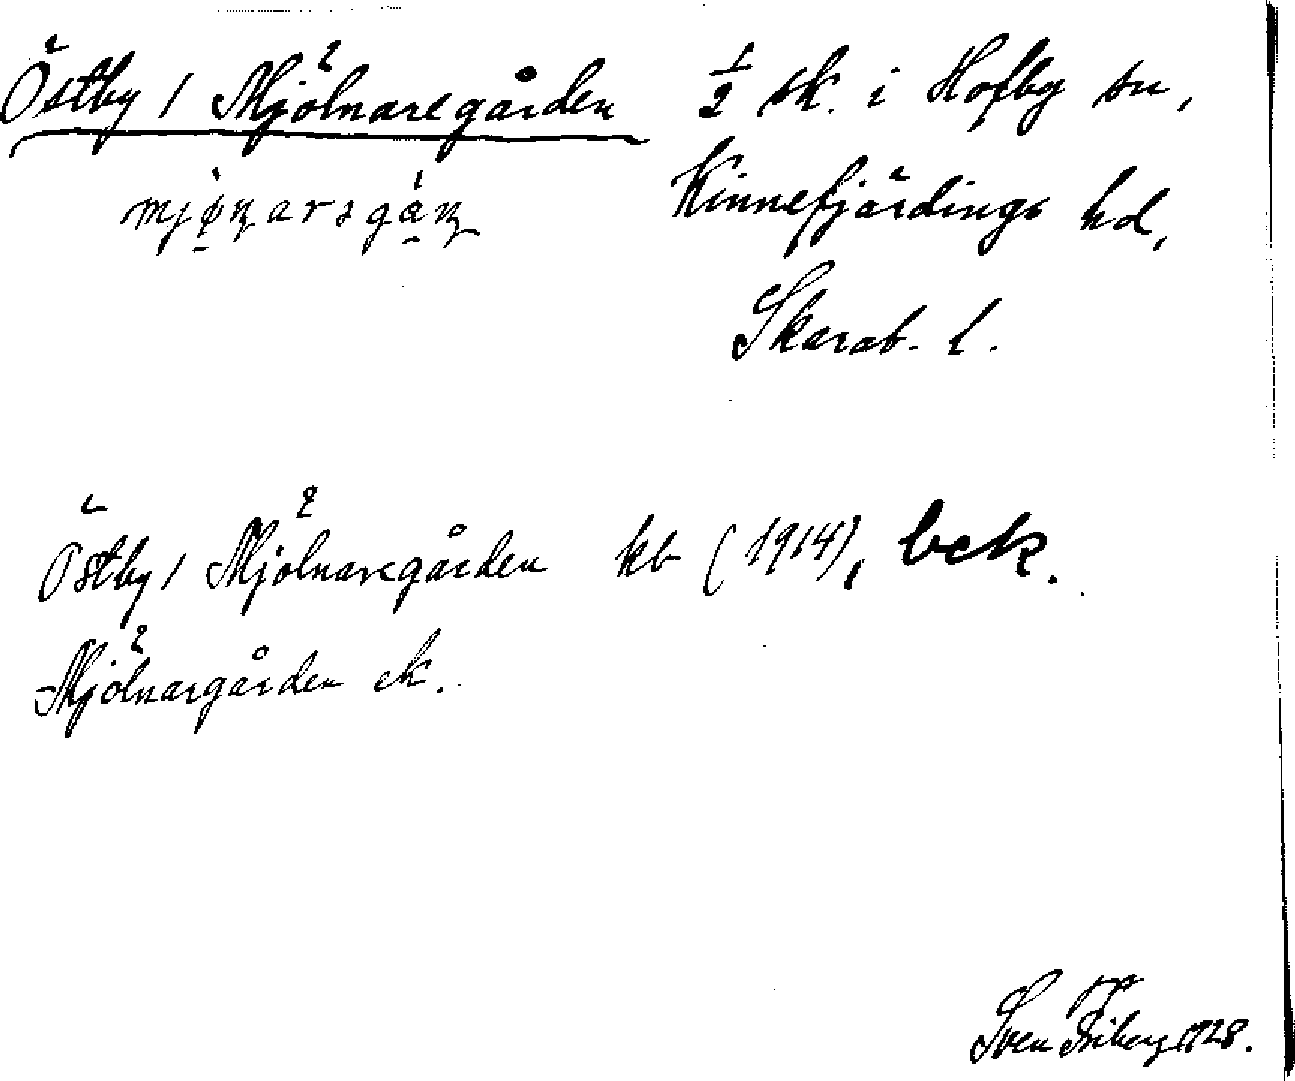 Östby / Mjölnaregården 1/2 sk. i Hofby sn,
mjònarsgán Kinnefjärdings hd,
Skarab. l.
Östby / Mjölnaregården kb (1914), bck.
Mjölnargården ek.
Sven Friberg 1928.